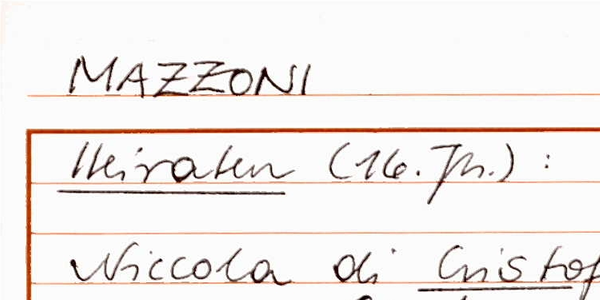 MAZZONI
Heiraten (16. Jh.) :
Niccola di Cristof